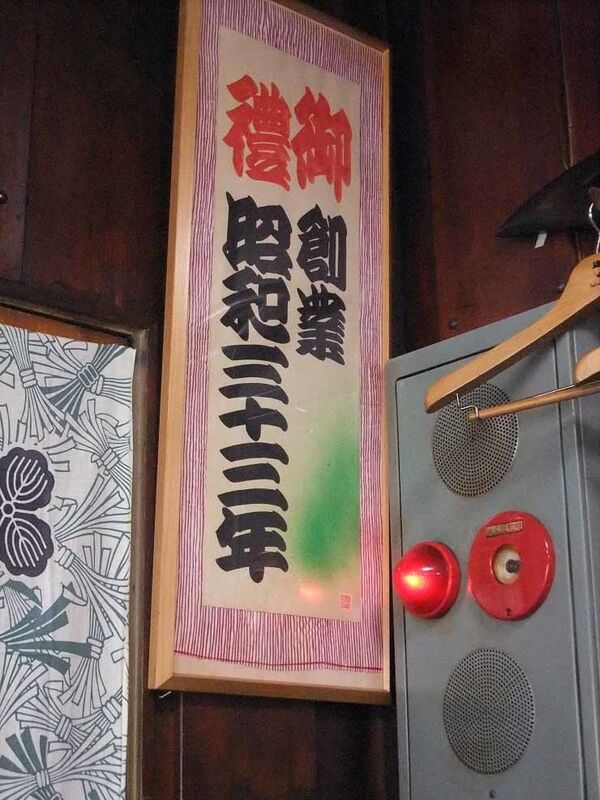 御禮
創業
昭和三十三年